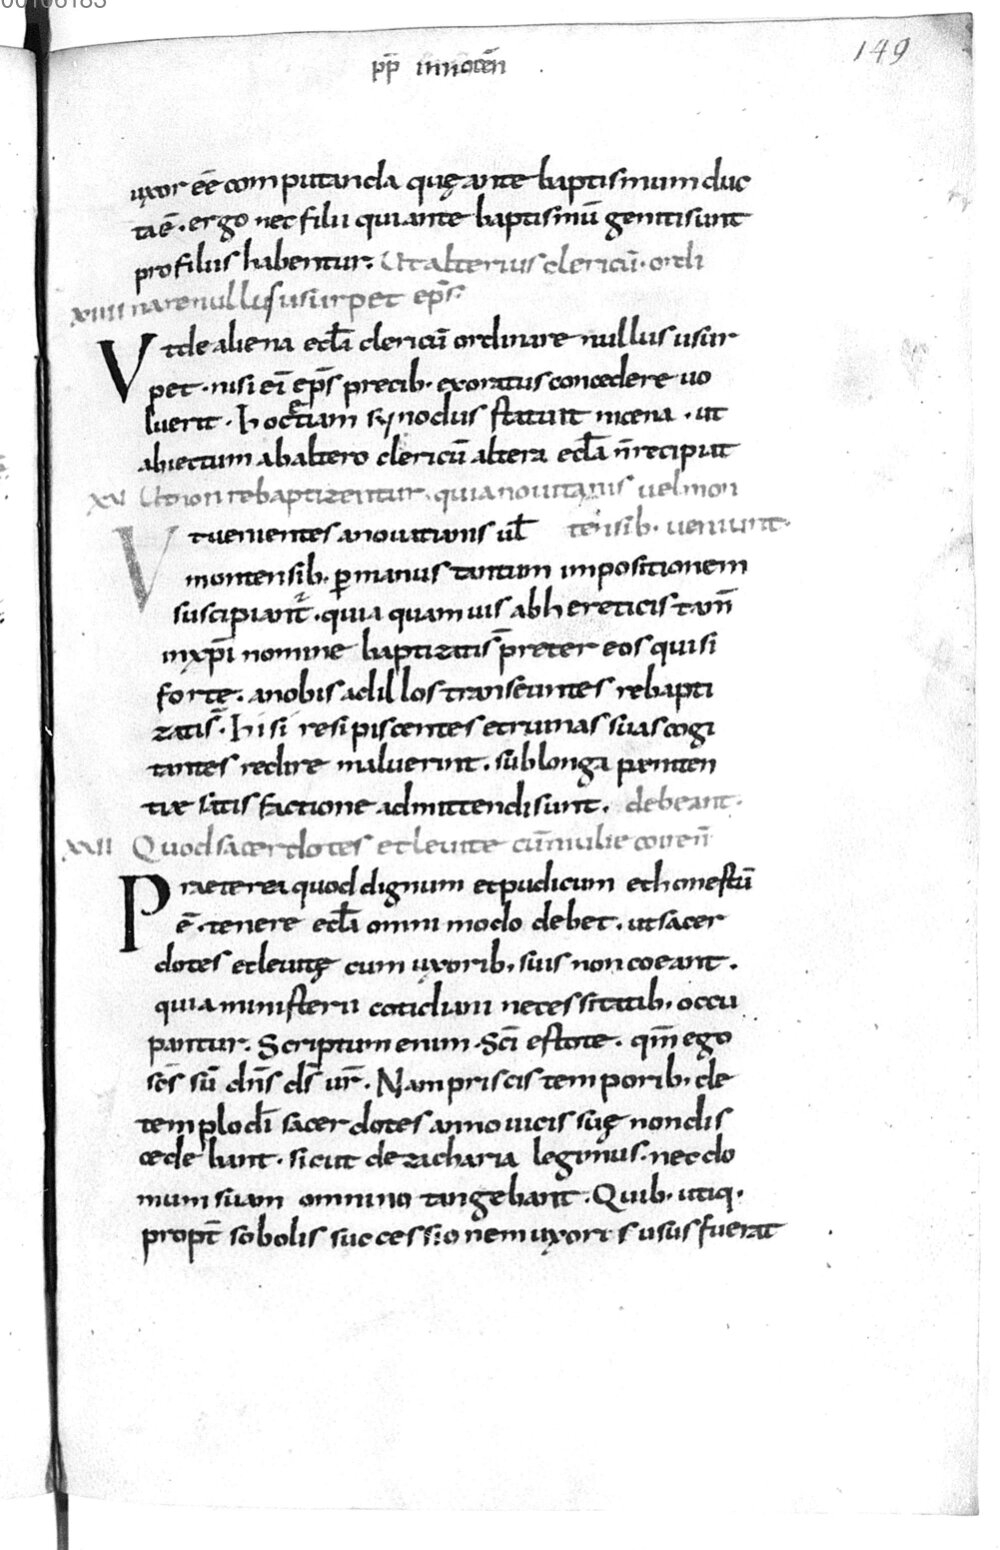 00106183
149
pp̄ innocēn
uxor eē̄ computanda quę ante baptismum duc
ta ē. ergo nec filii qui ante baptismū geniti sunt
pro filiis habentur. Ut alterius clericū ordi
xuiiii nare nullus usurpet ep̄s.
Vt de aliena eccl̄a clericū ordinare nullus usur
pet. nisi ei ep̄s precib. exoratus concedere uo
luerit. Hoc etiam synodus statuit nicena. ut
abiectum ab altero clericū altera eccl̄a n̄ recipiat
xxi Ut non rebaptizentur. qui a nouitianis uel mon
Vt uenientes a nouitianis ul̄ tensib. ueniunt.
montensib. ꝑ manus tantum impositionem
suscipiant. quia quamuis ab hereticis tam̄
in xp̄i nomine baptizati s̄ preter eos qui si
forte. a nobis ad illos transeuntes rebapti
zati s̄. Hi si resipiscentes et ruinas suas cogi
tantes redire maluerint. sub longa peniten
tiæ satisfactione admittendi sunt. debeant.
xxii Quod sacerdotes et leuite cū mulie coren̄
Praeterea quod dignum et pudicum et honestū
ē. tenere eccl̄a omni modo debet. ut sacer
dotes et leuitę cum uxorib. suis non coeant.
quia ministerii cotidiani necessitatib. occu
pantur. Scriptum enim. Sc̄i estote. qm̄ ego
sc̄s sū dn̄s ds̄ ur̄. Nam priscis temporib. de
templo dī sacerdotes anno uicis suę non dis
cedebant. sicut de zacharia legimus. nec do
mum suam omnino tangebant. Quib. utiq.
propt̄ sobolis successionem uxoris usus fuerat